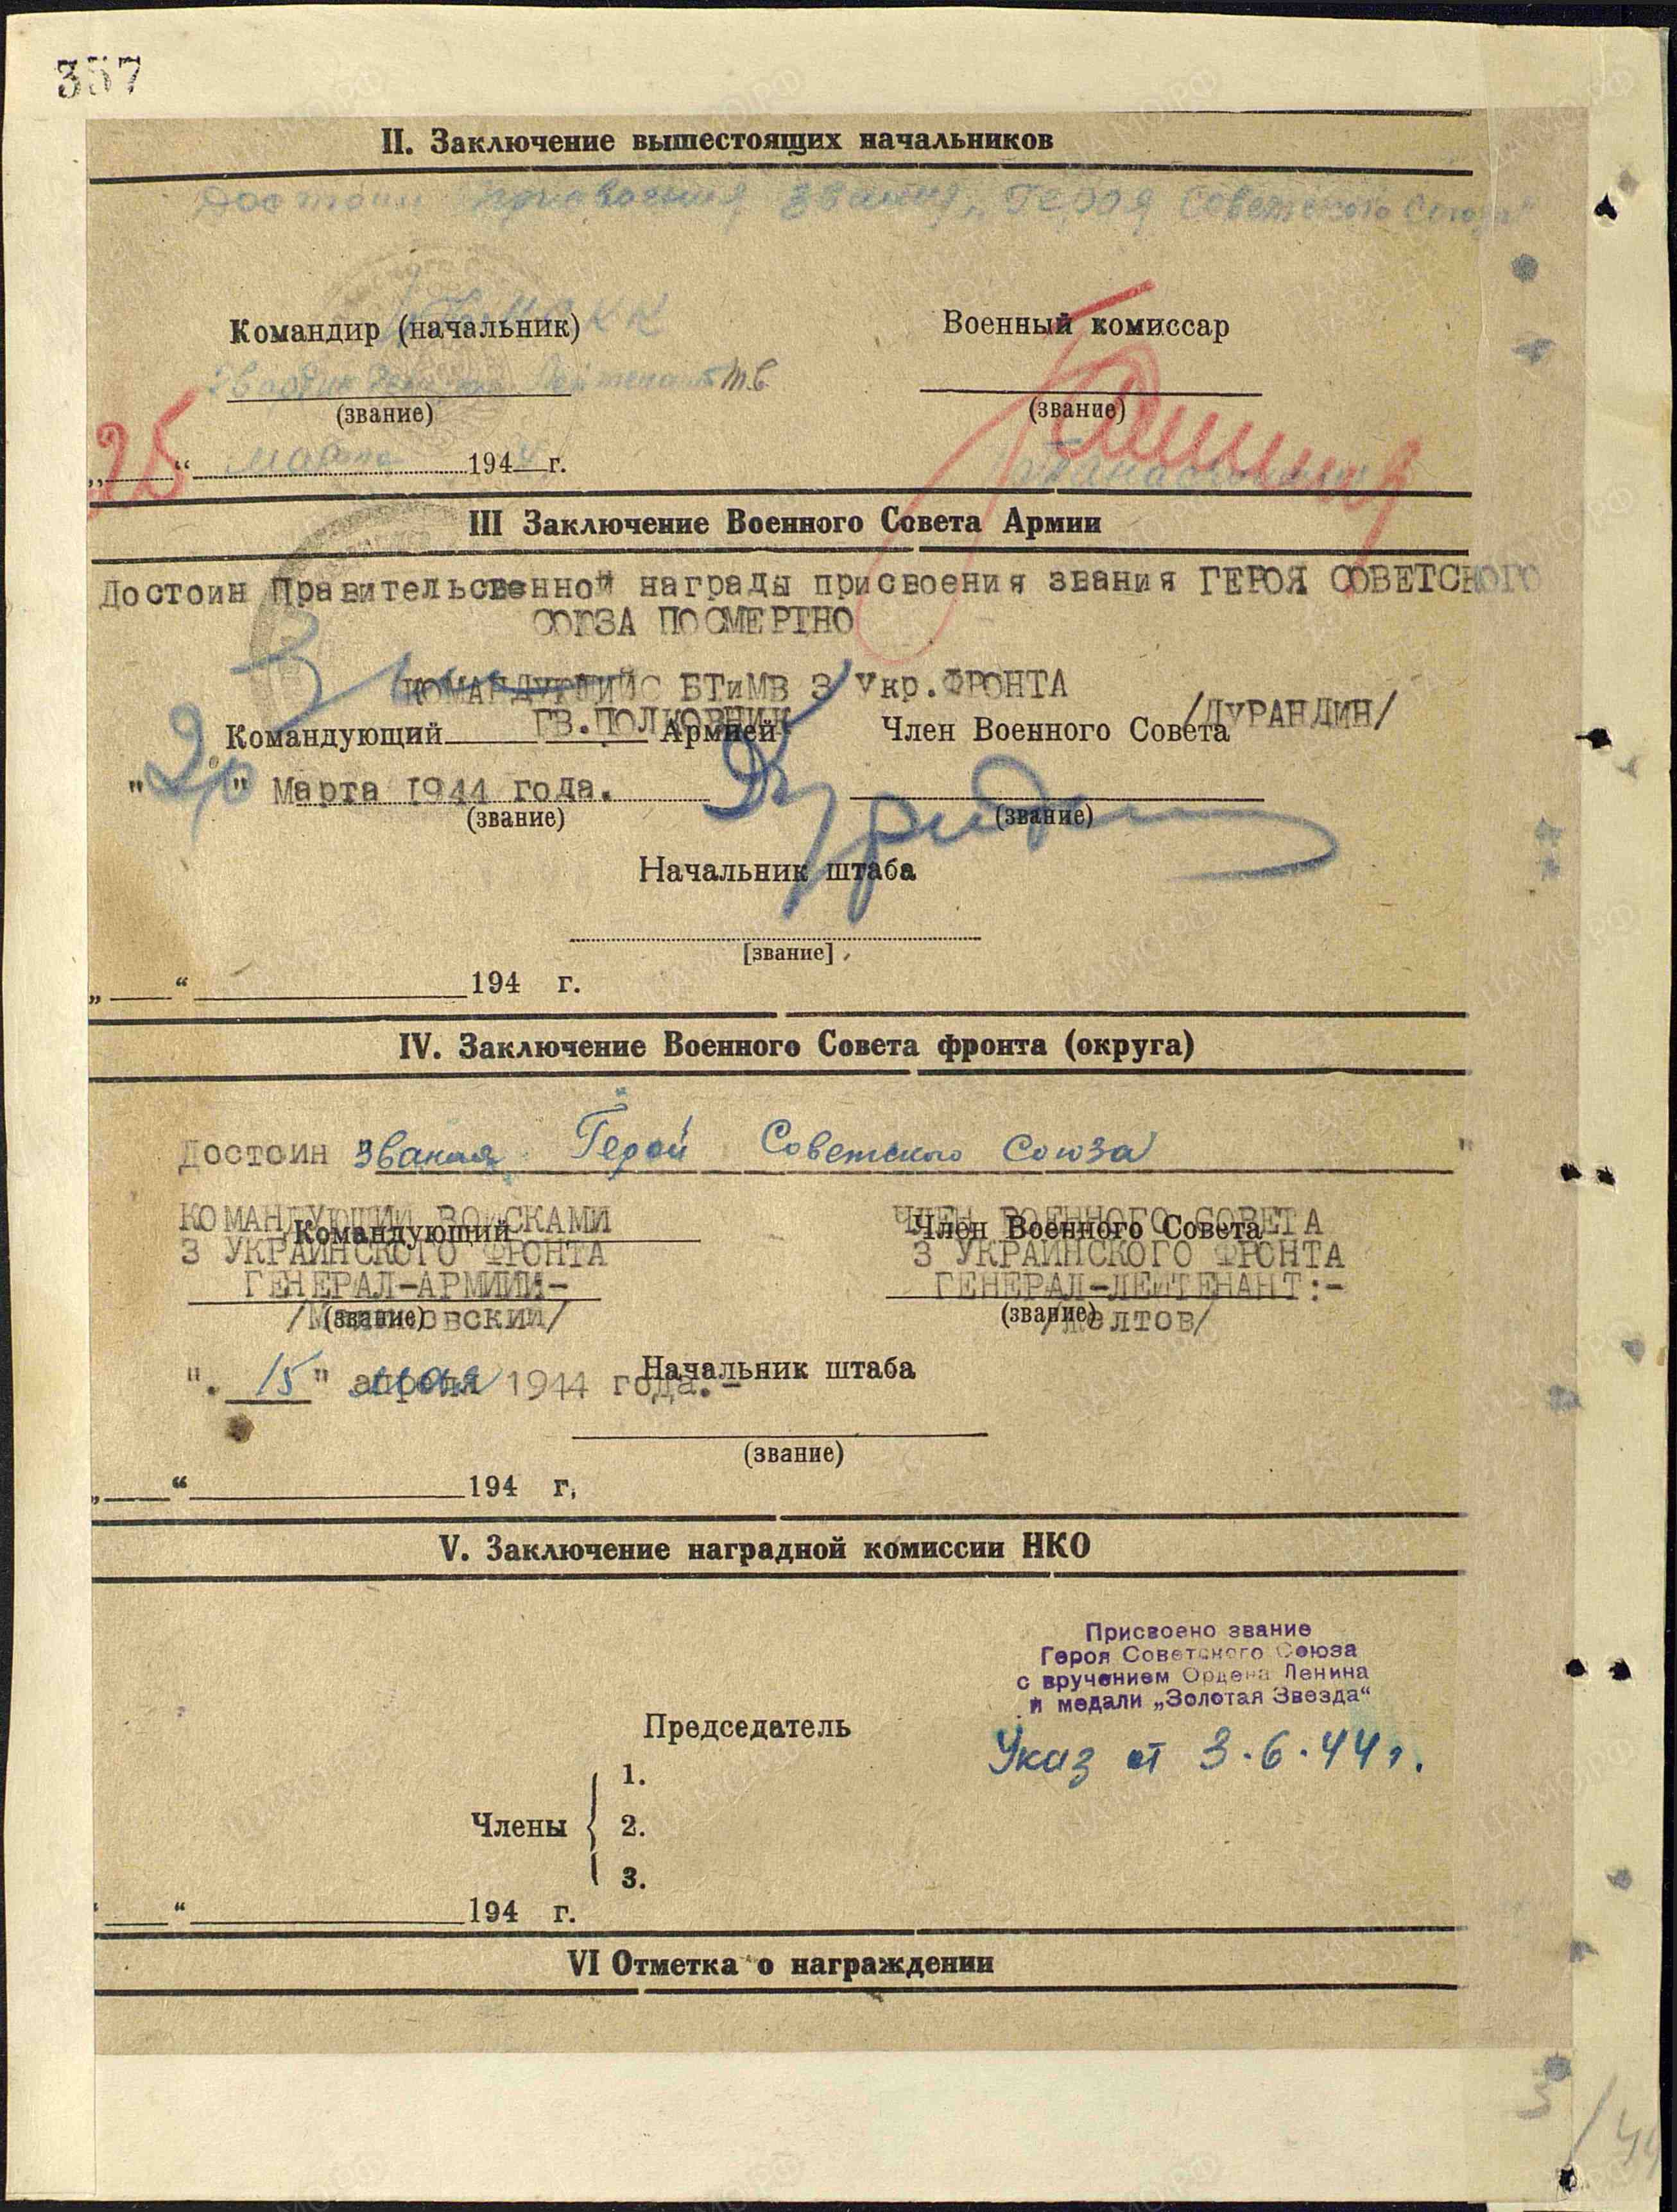 357
II. Заключение вышестоящих начальников
Достоин присвоения звания „Героя Советского Союза"
Командир (начальник)
Военный комиссар
Гвардии Лейтенант т/в
(звание)
(звание)
„25“ марта 1944 г.
III Заключение Военного Совета Армии
Достоин Правительсвенной награды присвоения звания ГЕРОЯ СОВЕТСКОГО
СОЮЗА ПОСМЕРТНО
БТиМВ 3 Укр. ФРОНТА
ГВ. ПОЛКОВНИК
/ДУРАНДИН/
Командующий Армией
Член Военного Совета
" " Марта 1944 года.
(звание)
(звание)
Начальник штаба
[звание]
„ “ 194 г.
IV. Заключение Военного Совета фронта (округа)
Достоин звания Герой Советского Союза
КОМАНДУЮЩИЙ ВОЙСКАМИ
ЧЛЕН ВОЕННОГО СОВЕТА
Командующий
Член Военного Совета
3 УКРАИНСКОГО ФРОНТА
3 УКРАИНСКОГО ФРОНТА
ГЕНЕРАЛ-АРМИИ:-
ГЕНЕРАЛ-ЛЕЙТЕНАНТ:-
/Малиновский/
/Желтов/
(звание)
(звание)
". 15" мая 1944 года.-
Начальник штаба
(звание)
„ “ 194 г.
V. Заключение наградной комиссии НКО
Присвоено звание
Героя Советского Союза
с вручением Ордена Ленина
и медали „Золотая Звезда“
Указ от 3.6.44 г.
Председатель
1.
Члены 2.
3.
„ “ 194 г.
VI Отметка о награждении